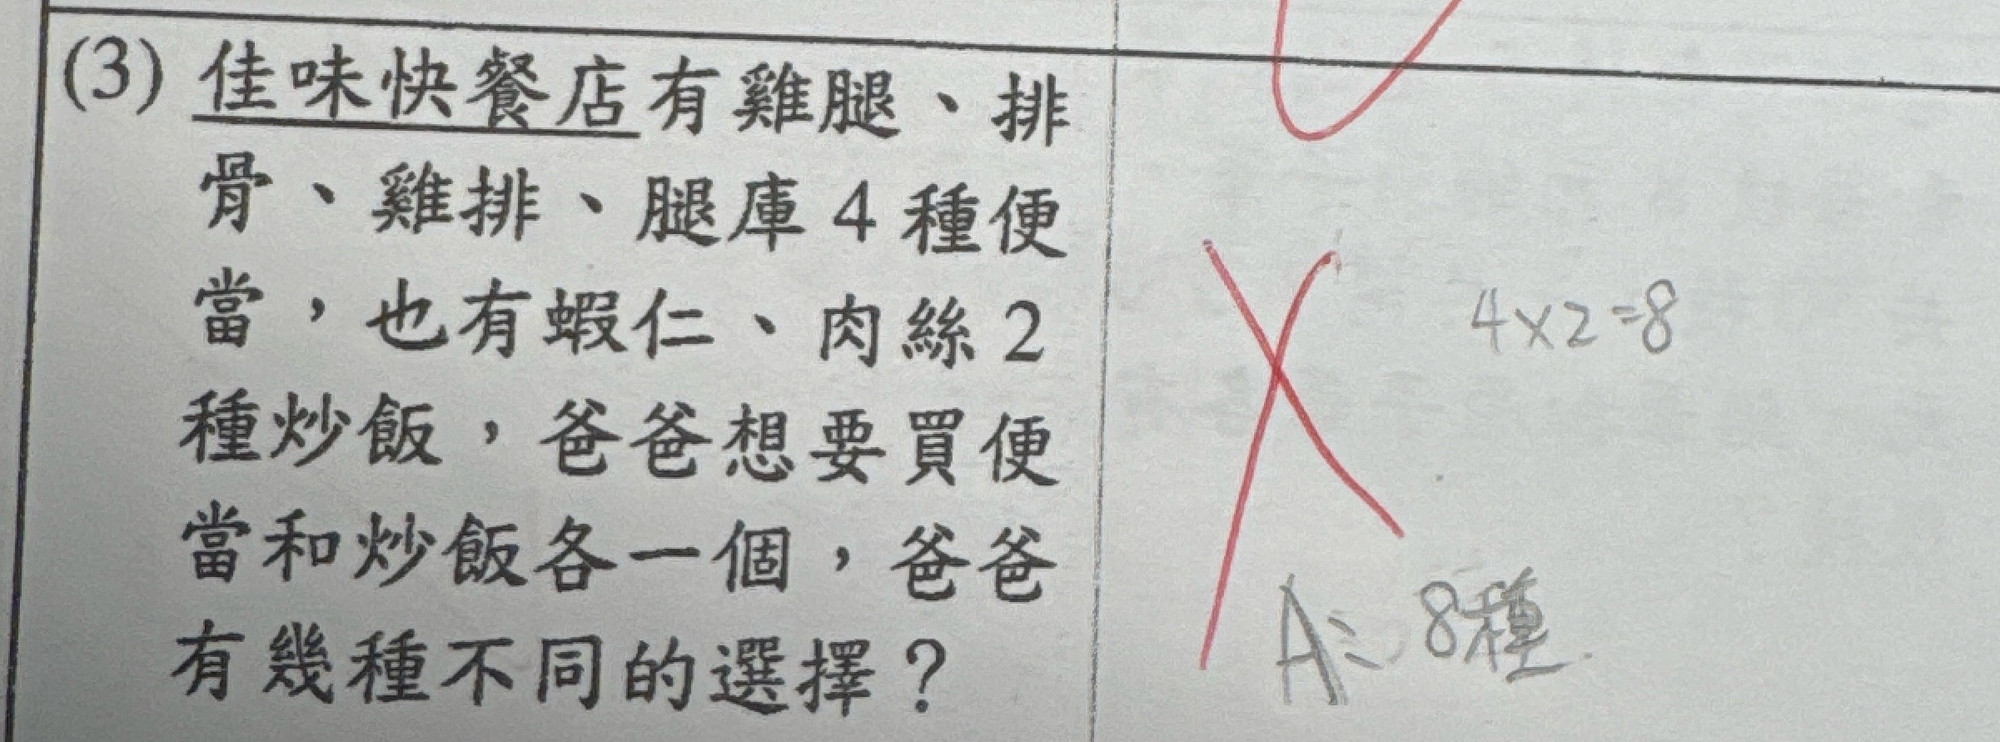 (3) 佳味快餐店有雞腿、排
骨、雞排、腿庫4種便
當，也有蝦仁、肉絲2
種炒飯，爸爸想要買便
當和炒飯各一個，爸爸
有幾種不同的選擇？
4×2=8
A: 8種